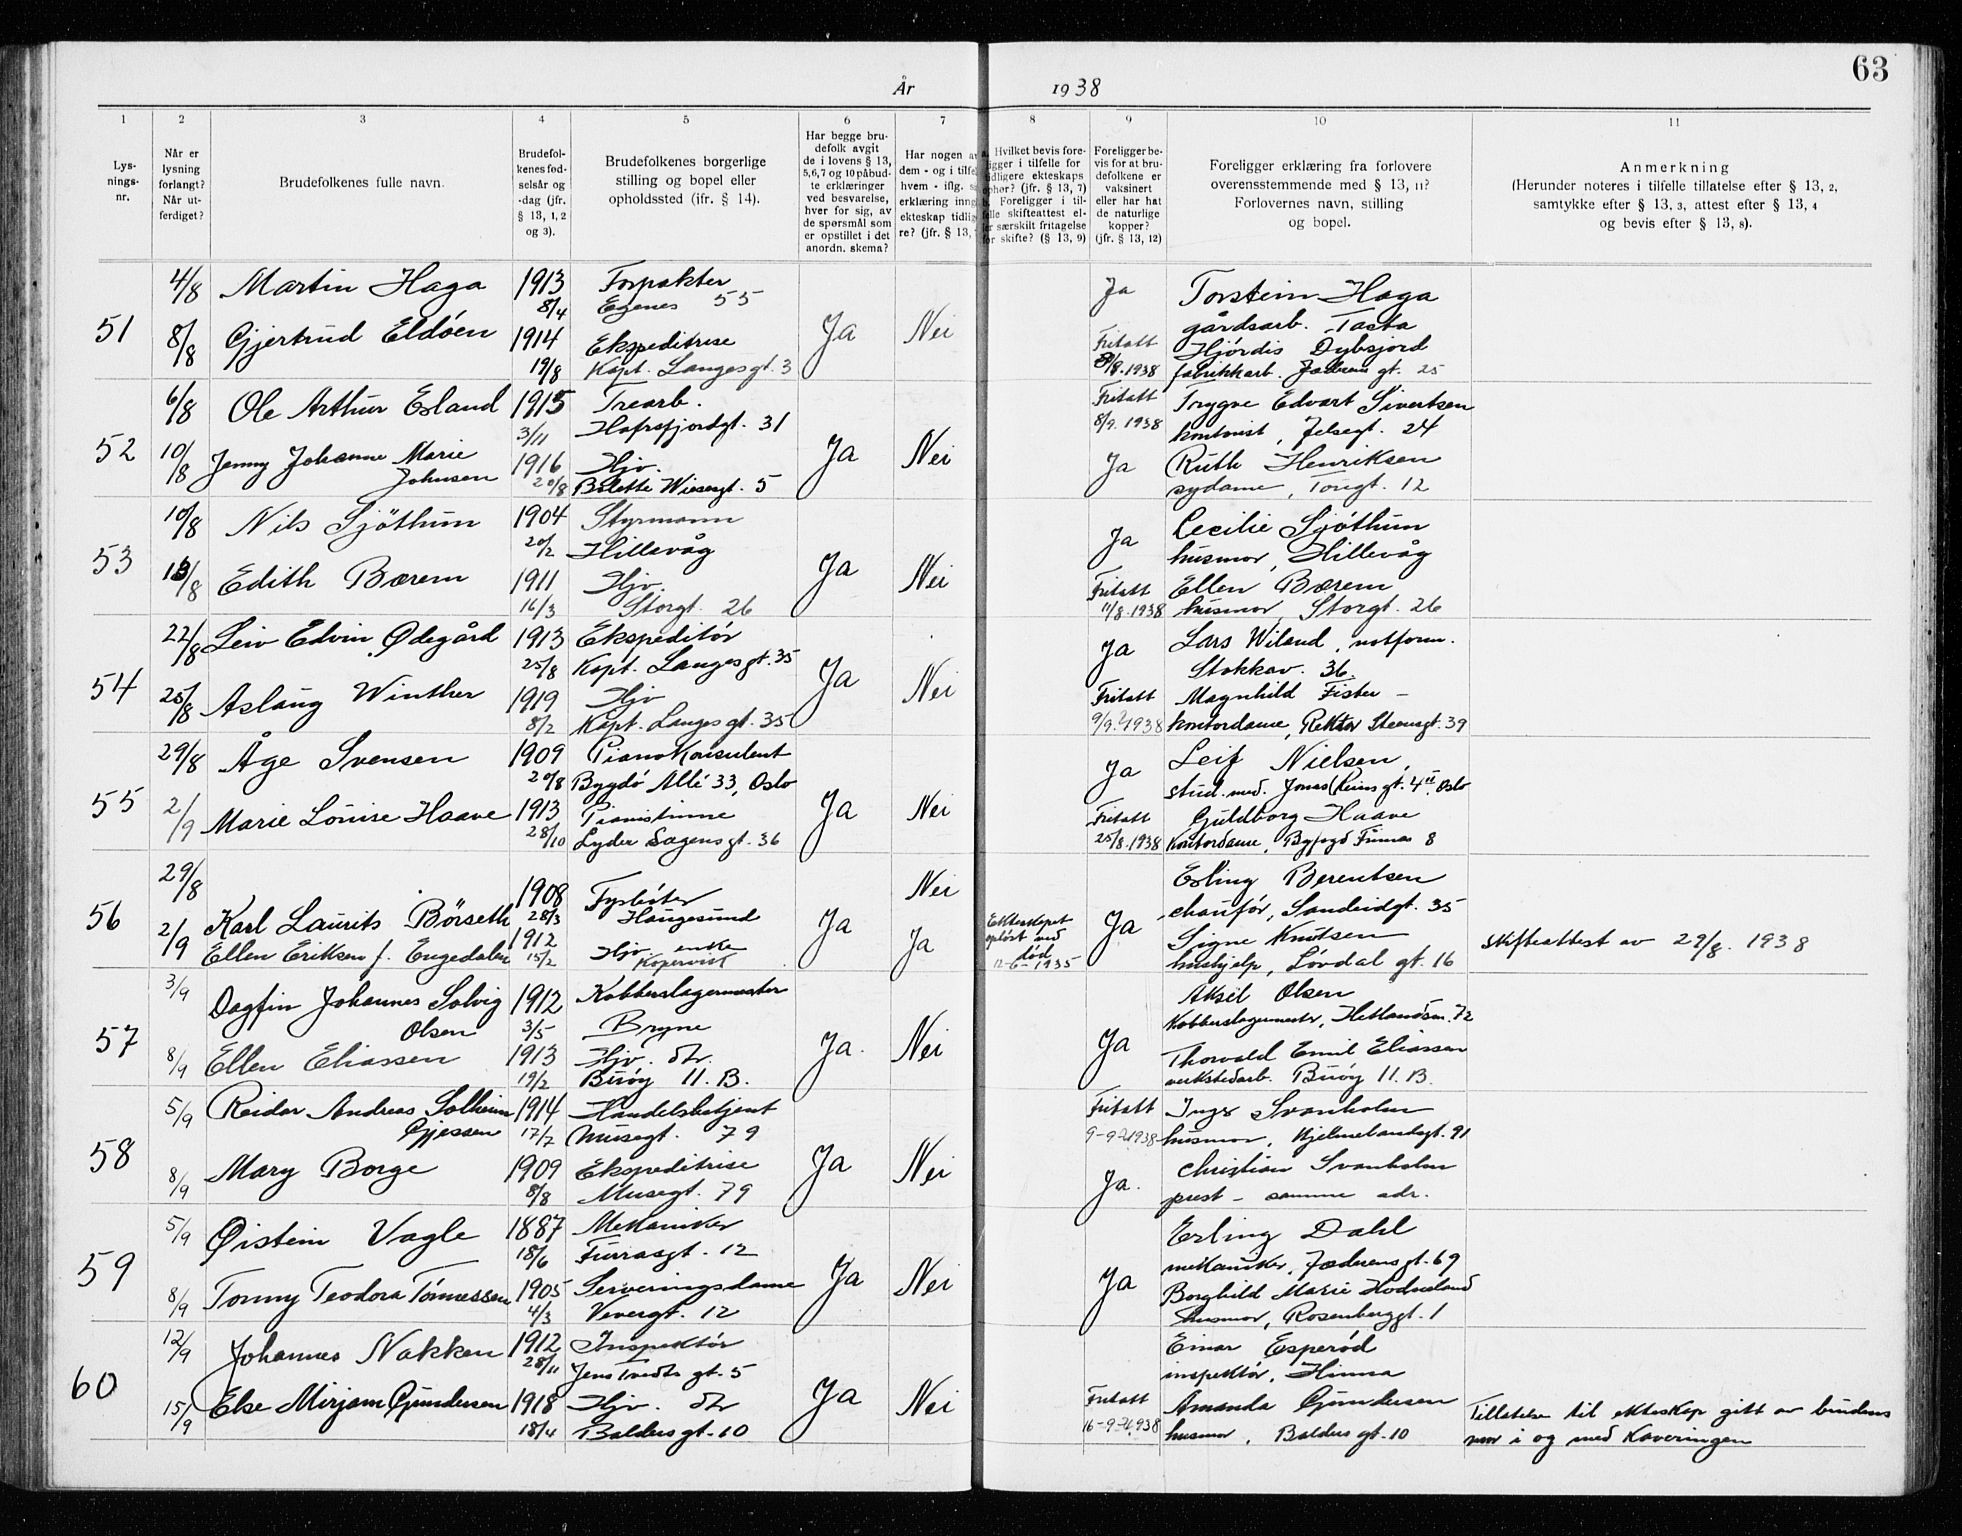 63
År 1938
1 2 3 4 5 6 7 8 9 10 11
Lysningsnr.
Når er lysning forlangt? Når utferdiget?
Brudefolkenes fulle navn.
Brudefolkenes fødselsår og -dag (jfr. § 13, 1, 2 og 3).
Brudefolkenes borgerlige stilling og bopel eller opholdssted (jfr. § 14).
Har begge brudefolk avgit de i lovens § 13, 5, 6, 7 og 10 påbudte erklæringer ved besvarelse, hver for sig, av de spørsmål som er opstillet i det anordn. skema?
Har nogen av dem - og i tilfe hvem - iflg. erklæring inng ekteskap tidligere? (jfr. § 13,
Hvilket bevis foreligger i tilfelle for tidligere ekteskaps ophør? (jfr. § 13, 7) Foreligger i tilfelle skifteattest eller særskilt fritagelse for skifte? (§ 13, 9)
Foreligger bevis for at brudefolkene er vaksinert eller har hat de naturlige kopper? (jfr. § 13, 12)
Foreligger erklæring fra forlovere overensstemmende med § 13, 11? Forlovernes navn, stilling og bopel.
Anmerkning
(Herunder noteres i tilfelle tillatelse efter § 13, 2, samtykke efter § 13, 3, attest efter § 13, 4 og bevis efter § 13, 8).
51 4/8 Martin Haga 1913 Forpakter Ja Torstein Haga
8/4 Egenes 55 gårdsarb. Tasta
8/8 Gjertrud Eldöen 1914 Ekspeditrise Ja Nei Fritatt Hjördis Dybsjord
19/8 Kapt. Langesgt. 3 /8.1938 fabrikkarb. gt. 25
52 6/8 Ole Arthur Esland 1915 Trearb. Fritatt Trygve Edvart Sivertsen
3/11 Hafrsfjordgt. 31 8/9.1938 kontorist, Jelsegt. 24
10/8 Jenny Johanne Marie 1916 Hjv. Ja Nei Ja Ruth Henriksen
Johnsen 20/8 Bolette Wiesesgt. 5 sydame, Torgt. 12
53 10/8 Nils Sjöthun 1904 Styrmann Ja Cecilie Sjöthun
20/2 Hillevåg husmor, Hillevåg
13/8 Edith Bærem 1911 Hjv. Ja Nei Fritatt Ellen Bærem
16/3 Storgt. 26 11/8.1938 husmor, Storgt. 26
54 22/8 Leiv Edvin Ødegård 1913 Ekspeditör Ja Lars Wiland, notform.
25/8 Kapt. Langesgt. 35 Stokkav. 36.
25/8 Aslaug Winther 1919 Hjv Ja Nei Fritatt Magnhild Fister –
8/2 Kapt. Langes gt. 35 9/9.1938 kontordame, Rektor Steensgt. 39
55 29/8 Åge Svensen 1909 Pianokonsulent Ja Leif Nielsen,
20/8 Bygdö Allé 33, Oslo stud. med. Jonas Reins gt. 4 II, Oslo
2/9 Marie Louise Haave 1913 Pianistinne Ja Nei Fritatt Guldborg Haave
28/10 Lyder Sagens gt. 36 25/8.1938 Kontordame, Byfogd Finnes 8
56 29/8 Karl Laurits Börseth 1908 Fyrböter Nei Erling Berentsen
28/3 Haugesund chauför, Sandeidgt. 35
2/9 Ellen Eriksen f. Engedalen 1912 Hjv. enke Ja Ja Ekteskapet oplöst ved död 12-6-1935 Ja Signe Knutsen
15/2 Kopervik hushjelp, Lövdal gt. 16 skifteattest av 29/8. 1938
57 3/9 Dagfin Johannes Solvig 1912 Kobberslagermester Aksel Olsen
Olsen 3/5 Bryne Kobberslagermester, Hetlandsm. 72
8/9 Ellen Eliassen 1913 Hjv. dtr. Ja. Nei Ja Thorvald Emil Eliassen
19/2 Buöy 11. B. verkstedarb. Buöy 11. B.
58 5/9 Reidar Andreas Solheim 1914 Handelsbetjent Fritatt Inga Svanholm
Gjessen 17/2 Musegt. 79 9-9-1938 husmor, Kjelvenelandsgt. 91
8/9 Mary Borge 1909 Ekspeditrise Ja Nei Ja. Christian Svanholm
8/8 Musegt. 79 prest – samme adr.
59 5/9 Øistein Vagle 1887 Mekaniker Erling Dahl
18/6 Furrasgt. 12 mekaniker, Jæderens gt. 69
8/9 Tonny Teodora Tönnessen 1905 Serveringsdame Ja Nei Ja Borghild Marie Hodneland
4/3 Vevergt. 12 husmor, Rosenberggt. 1
60 12/9 Johannes Nakken 1912 Inspektör Einar Esperöd
28/11 Jens Tvedts gt. 5 inspektör, Hinna
15/9 Else Mirjam Gundersen 1918 Hjv. dtr Ja Nei Fritatt Amanda Gundersen Tillatelse til ekteskap gitt av brudens
18/4 Baldersgt. 10 16-9-1938 husmor, Balders gt. 10 mor i og med kaveringen